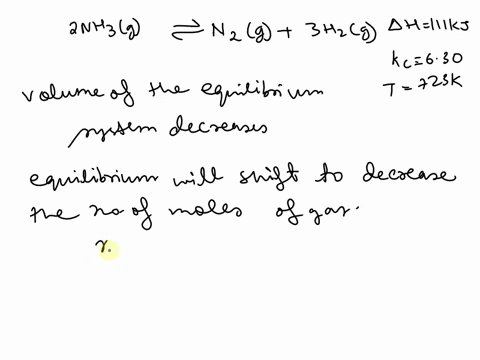 2NH3(g) ⇌ N2(g) + 3H2(g) ΔH=111KJ
Kc=6.30
T=723K
volume of the equilibrium
system decreases
equilibrium will shift to decrease
the no of moles of gas.